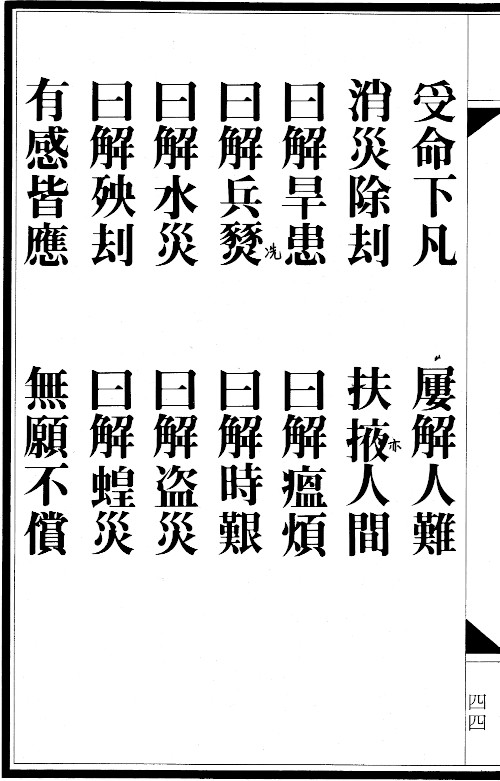 受命下凡　屢解人難
消災除刦　扶掖人間
曰解旱患　曰解瘟煩
曰解兵燹　曰解時艱
曰解水災　曰解盜災
曰解殃刦　曰解蝗災
有感皆應　無願不償
冼
亦
四四